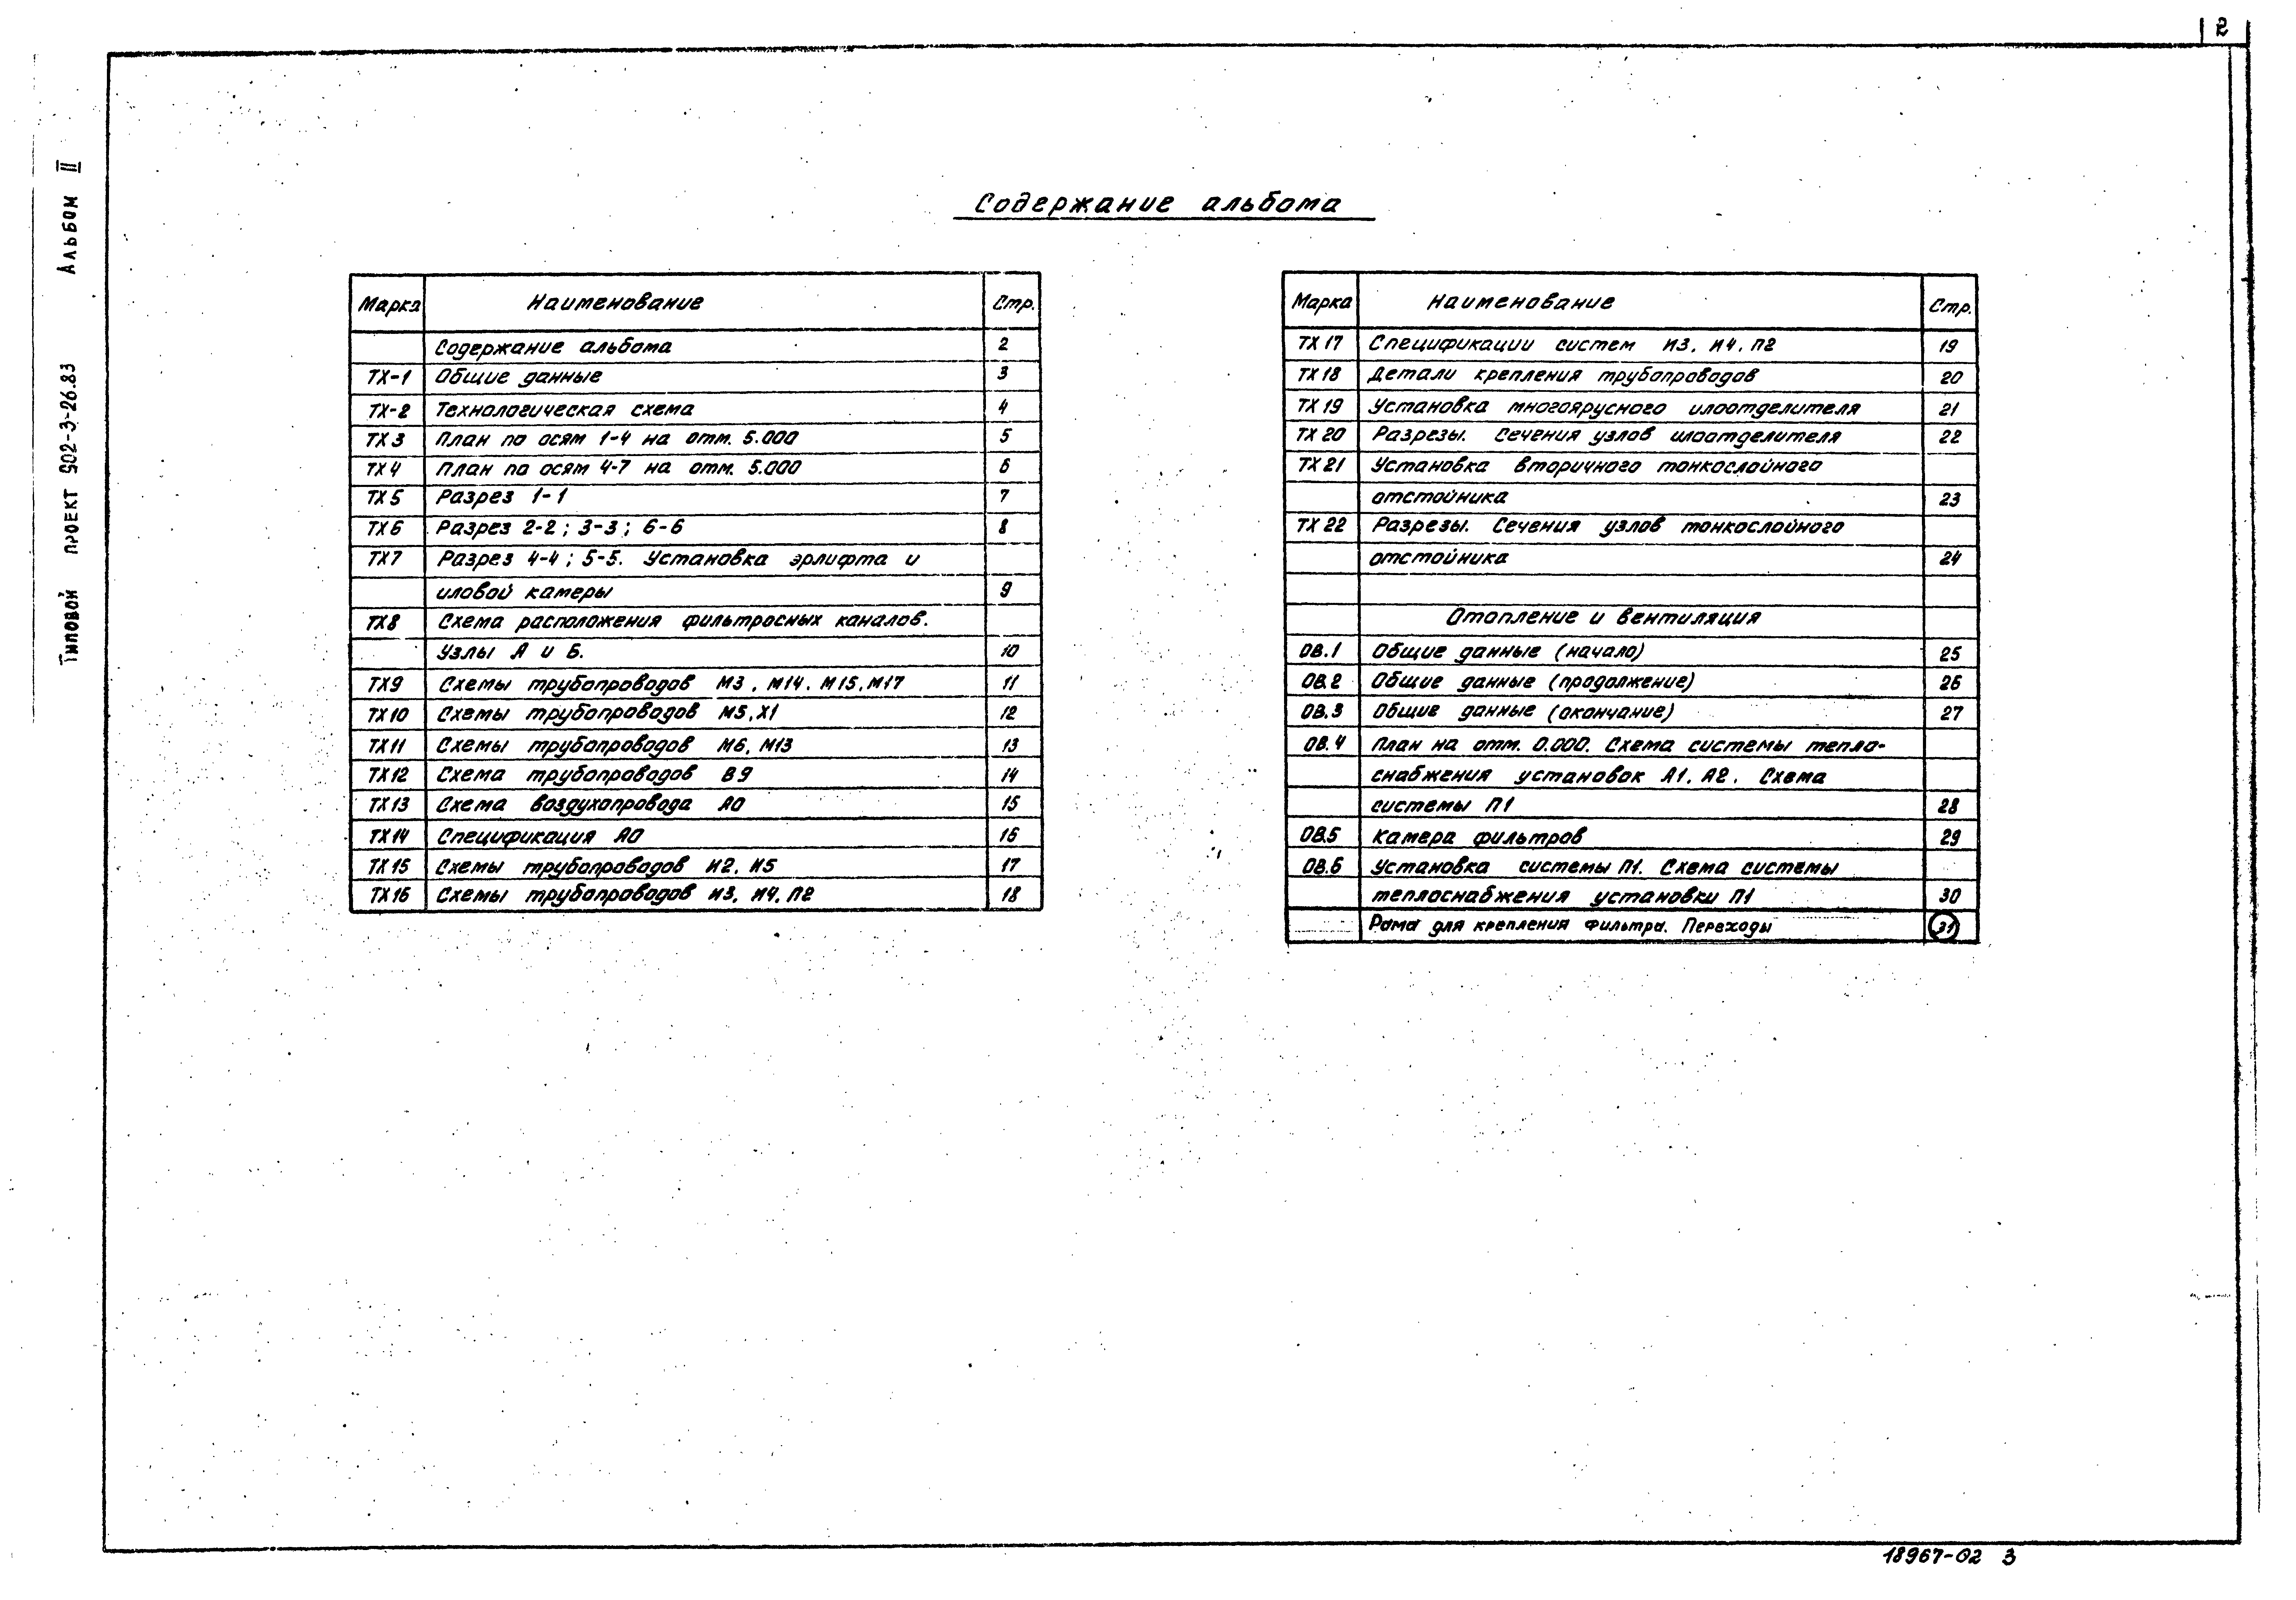 2
Альбом III
Типовой проект 902-3-26.83
Содержание альбома
Марка Наименование Стр.
Содержание альбома 2
ТХ-1 Общие данные 3
ТХ-2 Технологическая схема 4
ТХ3 План по осям 1-4 на отм. 5.000 5
ТХ4 План по осям 4-7 на отм. 5.000 6
ТХ5 Разрез 1-1 7
ТХ6 Разрез 2-2; 3-3; 6-6 8
ТХ7 Разрез 4-4; 5-5. Установка эрлифта и
иловой камеры 9
ТХ8 Схема расположения фильтросных каналов.
Узлы А и Б. 10
ТХ9 Схемы трубопроводов М3, М14, М15, М17 11
ТХ10 Схемы трубопроводов М5, Х1 12
ТХ11 Схемы трубопроводов М6, М13 13
ТХ12 Схема трубопроводов В9 14
ТХ13 Схема воздухопровода А0 15
ТХ14 Спецификация А0 16
ТХ15 Схемы трубопроводов И2, И5 17
ТХ16 Схемы трубопроводов И3, И4, П2 18
Марка Наименование Стр.
ТХ17 Спецификации систем И3, И4, П2 19
ТХ18 Детали крепления трубопроводов 20
ТХ19 Установка многоярусного илоотделителя 21
ТХ20 Разрезы. Сечения узлов илоотделителя 22
ТХ21 Установка вторичного тонкослойного
отстойника 23
ТХ22 Разрезы. Сечения узлов тонкослойного
отстойника 24
Отопление и вентиляция
ОВ.1 Общие данные (начало) 25
ОВ.2 Общие данные (продолжение) 26
ОВ.3 Общие данные (окончание) 27
ОВ.4 План на отм. 0.000. Схема системы тепло-
снабжения установок А1, А2. Схема
системы П1 28
ОВ.5 Камера фильтров 29
ОВ.6 Установка системы П1. Схема системы
теплоснабжения установки П1 30
Рама для крепления фильтра. Переходы 31
18967-02 3